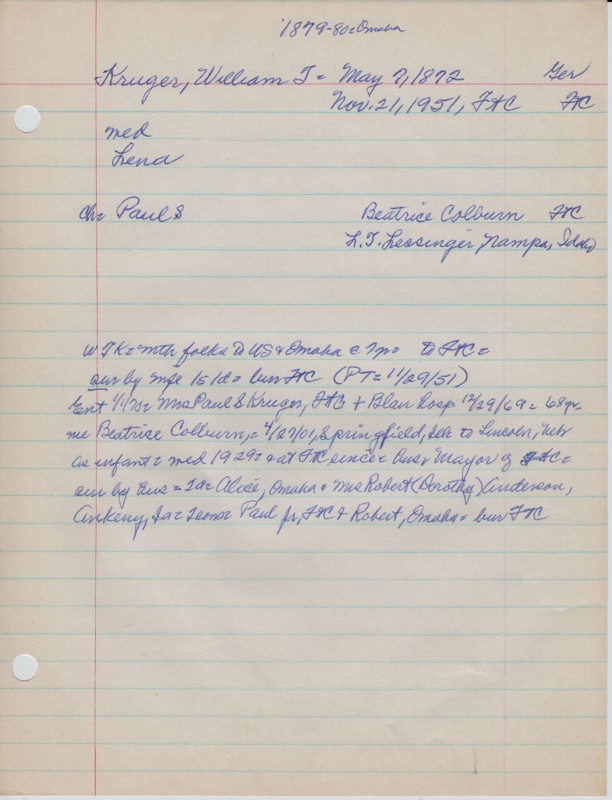 1879-80 = Omaha
Kruger, William T = May 7, 1872 Ger
Nov. 21, 1951, FtC FtC
med
Lena
ch = Paul S Beatrice Colburn FtC
L. T. Lessinger, Nampa, Idaho
WTK = with folks to US & Omaha @ 7 yr = to FtC =
sur by wife 1s 1d = bur FtC (PT = 11/29/51)
Ent 1/1/70 = Mrs Paul S Kruger, FtC + Blair Hosp 12/29/69 = 68 yr =
nee Beatrice Colburn, = 4/27/01, Springfield, Ill to Lincoln, Neb
as infant = med 1929 = & at FtC since = hus, Mayor of FtC =
sur by hus = 2d = Alice, Omaha & Mrs Robert (Dorothy) Anderson,
Ankeny, Ia = 2 sons = Paul Jr, FtC & Robert, Omaha = bur FtC